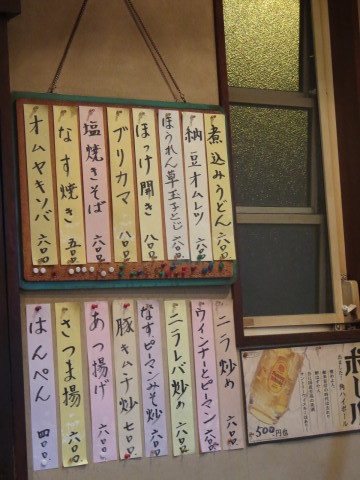 煮込みうどん 六〇〇
納豆オムレツ 六〇〇
ほうれん草玉子とじ 六〇〇
ほっけ開き 八〇〇
ブリカマ 八〇〇
塩焼きそば 六〇〇
なす焼き 五〇〇
オムヤキソバ 六〇〇
ニラ炒め 六〇〇
ウィンナとピーマン 六〇〇
ニラレバ炒め 六〇〇
なすピーマンみそ炒 六〇〇
豚キムチ炒 七〇〇
あつ揚げ 六〇〇
さつま揚 六〇〇
はんぺん 四〇〇
角ハイボール
500円